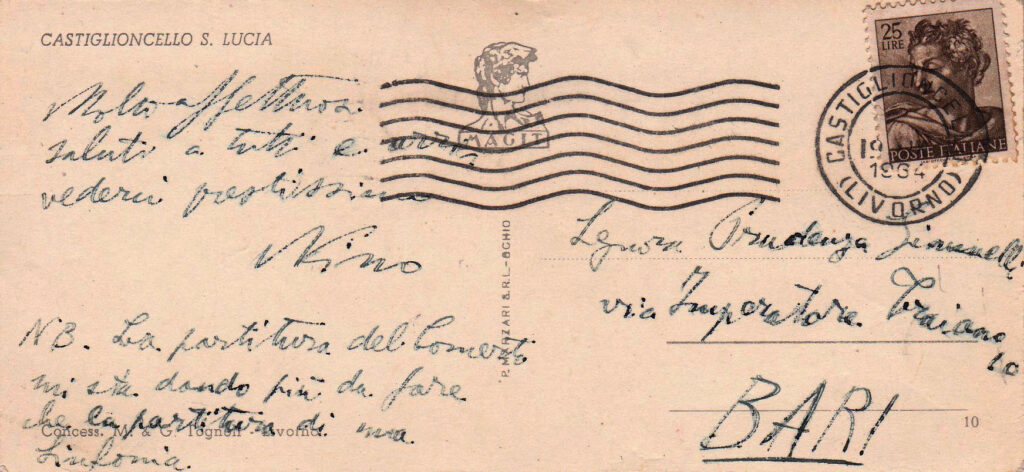 CASTIGLIONCELLO S. LUCIA
Molto affettuosi
saluti a tutti e arri-
vederci prestissimo
Nino
NB. La partitura del Concerto
mi sta dando più da fare
che la partitura di una
Sinfonia.
Concess. M. & G. Tognoli Livorno
MAGIT
P. MARZARI S.R.L.-SCHIO
25
LIRE
POSTE ITALIANE
CASTIGLIONCE
19
1964
(LIVORNO)
Signora Prudenza Giannelli
via Imperatore Traiano
10
BARI
10